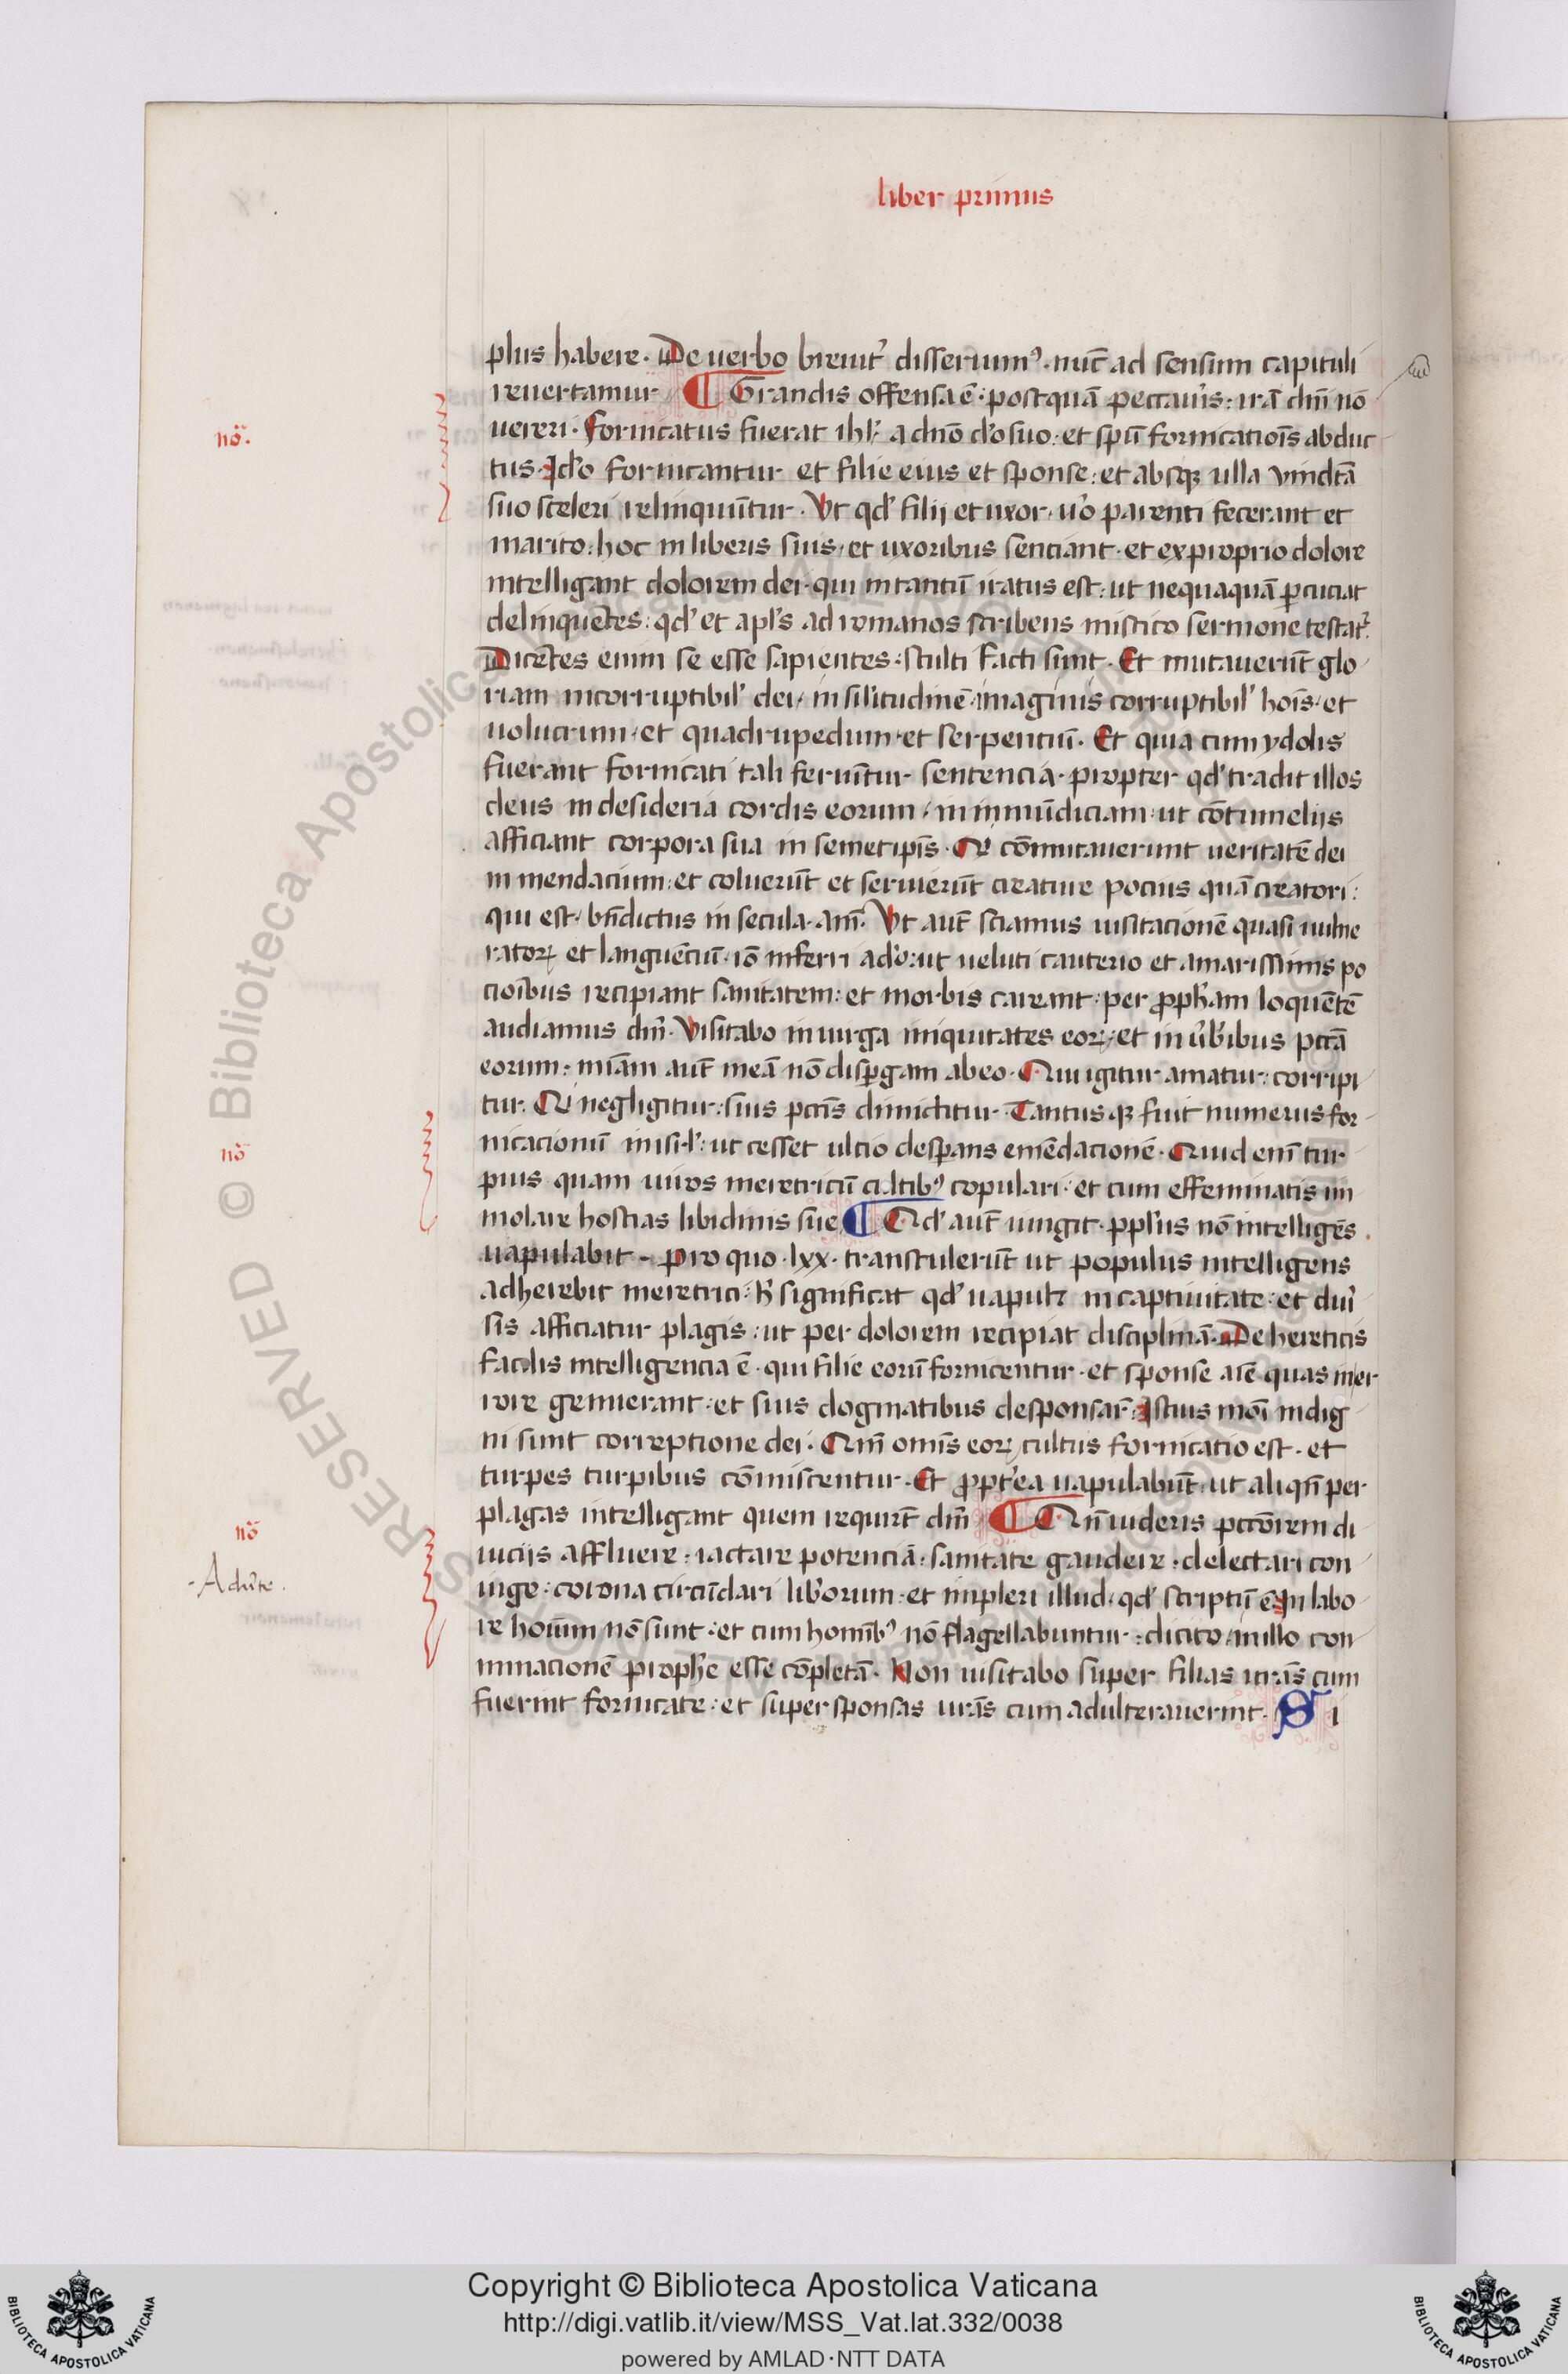 liber primus
plus habere. De uerbo breuit᷑ disseruimꝰ. nūc ad sensum capituli
reuertamur ¶ Grandis offensa ē. postquā peccaūis: irā dn̄i nō
uereri. fornicatus fuerat ihl̓: a dn̄o d̓o suo: et spū fornicatiōīs abduc
tus. Id̓o fornicantur et filie eius et sponse: et absqꝫ ulla vindc̄ta
suo sceleri relinquūtur. Vt qd̓ filij et uxor, u̓o parenti fecerant et
marito: hoc in liberis suis, et uxoribus senciant. et ex proprio dolore
intelligant dolorem dei. qui in tantū iratus est: ut nequaquā ꝑcuciat
delinquētes: qd̓ et apl̓s ad romanos scribens mistico sermone testat᷑.
Dicētes enim se esse sapientes: stulti facti sunt. Et mutauerūt glo
riam incorruptibil̓ dei, in sil̓itudinē imaginis corruptibil̓ hoīs, et
uolucrum, et quadrupedum, et serpentiū. Et quia cum ydolis
fuerant fornicati tali feriūtur sentencia. propter qd̓ tradit illos
deus in desideria cordis eorum, in inmūdiciam. ut cōtumelijs
afficiant corpora sua in semetip̄is. Qi cōmutauerunt ueritatē dei
in mendacium: et coluerūt et seruierūt creature pocius quā creatori:
qui est, bn̄dictus in secula. am̄. Vt aut̄ sciamus uisitacionē quasi uulne
ratoꝝ et languēciū. iō inferri a d̓o: ut ueluti cauterio et amarissimis po
cioībus recipiant sanitatem: et morbis careant. per ꝓph̓am loquētē
audiamus dn̄m. Visitabo in uirga iniquitates eoꝝ: et in u̓b̓ibus pctā
eorum: mīam aut̄ meā nō disꝑgam ab eo. Qui igitur amatur: corripi
tur. Qi negligitur: suis pctīs dimictitur. Tantusqꝫ fuit numerus for
nicacionū in isrl̓: ut cesset ulcio desꝑans emēdacionē. Quid enī tur
pius quam uiros meretriciū cultibꝰ copulari. et cum effeminatis im
molare hostias libidinis sue ¶ Qd̓ aut̄ iungit. ppl̓us nō intelligēs
uapulabit - pro quo .lxx. transtulerūt ut populus intelligens
adherebit meretrici: h̓ significat qd̓ uapulꝫ in captiuitate: et diu̓
sis afficiatur plagis: ut per dolorem recipiat disciplinā. De hereticis
facilis intelligencia ē. qui filie eorū fornicentur. et sponse aīe quas in er
rore genuerant: et suis dogmatibus desponsar̄: Istius moī indig
ni sunt correptione dei. Qm̄ omīs eoꝝ cultus fornicatio est. et
turpes turpibus cōmiscentur. Et ꝓpt̓ea uapulabūt, ut aliqn̄ per
plagas intelligant quem requir̄t dn̄m ¶ Qn̄ uideris pctōrem di
uicijs affluere: iactare potenciā: sanitate gaudere. delectari con
iuge: corona circūdari lib̓orum: et impleri illud. qd̓ scriptū ē. In labo
re hoīum nō sunt: et cum homībꝰ nō flagellabuntur: dicito in illo com
minacionē proph̓e esse cōpletā. Non uisitabo super filias ur̄as cum
fuerint fornicate: et super sponsas ur̄as cum adulterauerint. Si
nō.
nō
nō
Adu̓te.
Copyright © Biblioteca Apostolica Vaticana
http://digi.vatlib.it/view/MSS_Vat.lat.332/0038
powered by AMLAD·NTT DATA
BIBLIOTECA APOSTOLICA VATICANA
BIBLIOTECA APOSTOLICA VATICANA